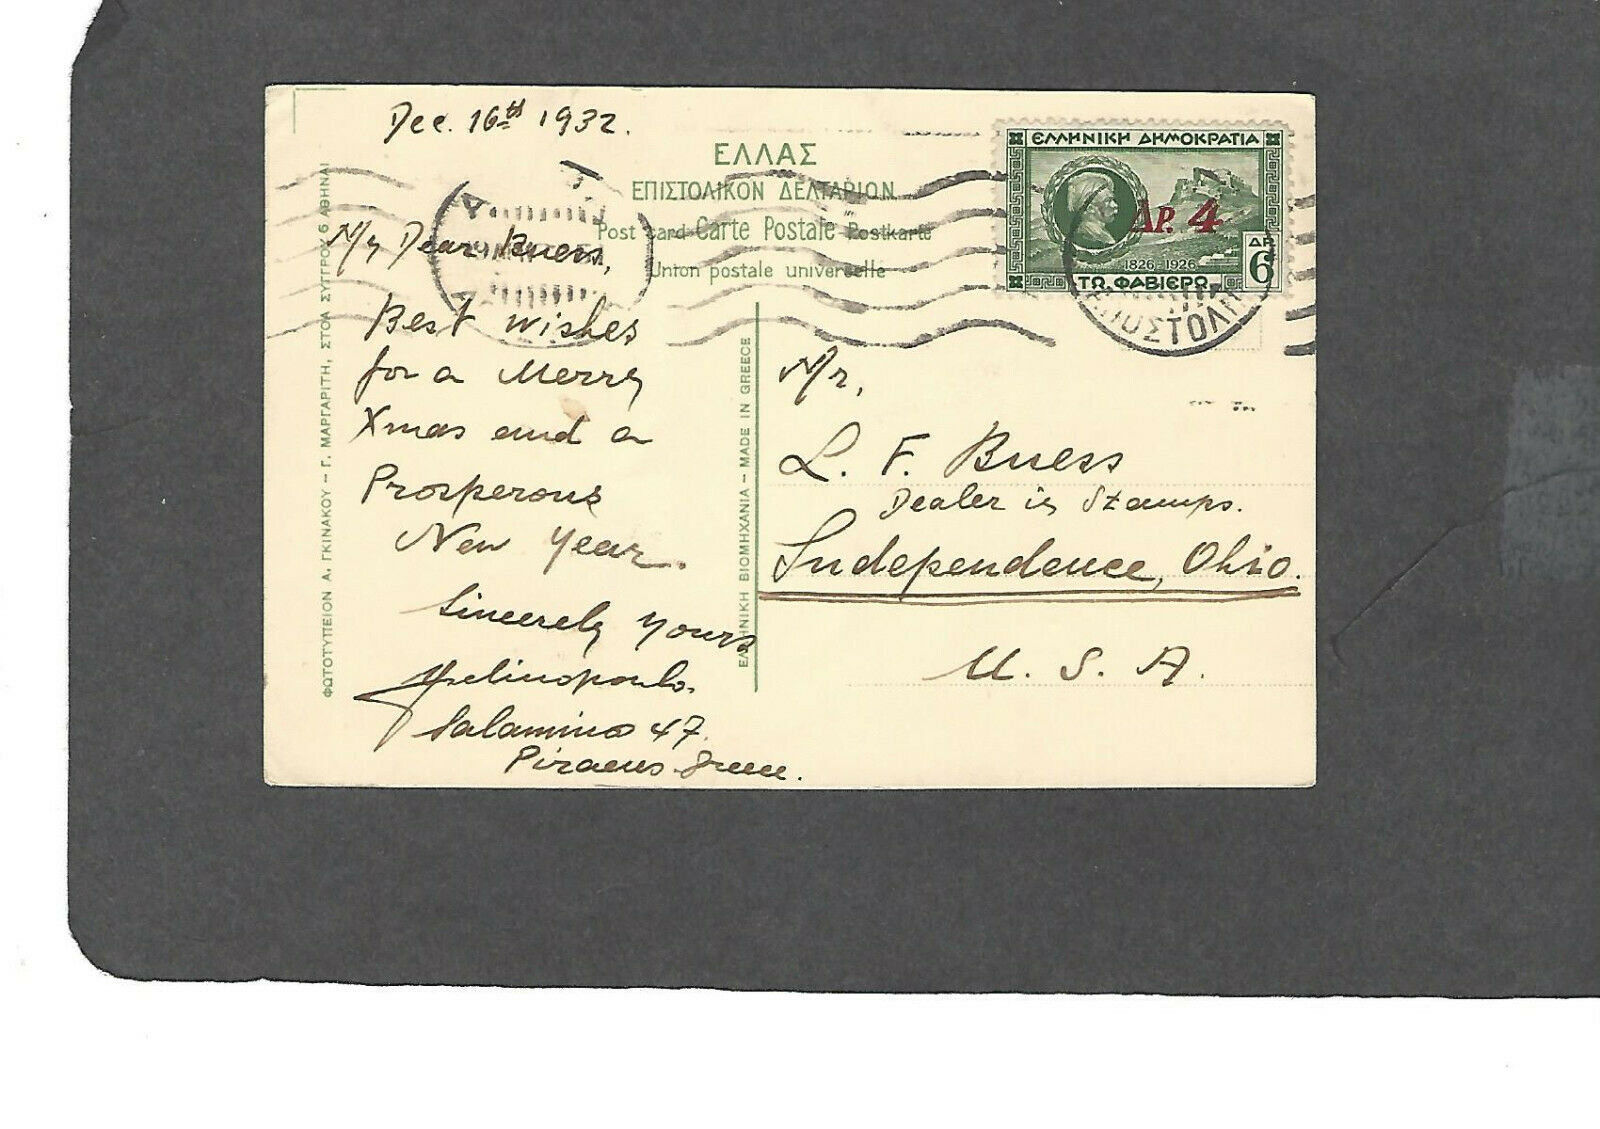 Dec. 16th 1932.
ΕΛΛΑΣ
ΕΠΙΣΤΟΛΙΚΟΝ ΔΕΛΤΑΡΙΟΝ
Post card - Carte Postale - Postkarte
Union postale universelle
My Dear Buess,
Best wishes
for a Merry
Xmas and a
Prosperous
New Year.
Sincerely yours
Salaminos 47.
Piraeus Greece.
ΦΩΤΟΤΥΠΕΙΟΝ Α. ΓΚΙΝΑΚΟΥ – Γ. ΜΑΡΓΑΡΙΤΗ, ΣΤΟΑ ΣΥΓΓΡΟΥ 6 ΑΘΗΝΑΙ
ΕΛΛΗΝΙΚΗ ΒΙΟΜΗΧΑΝΙΑ – MADE IN GREECE
ΕΛΛΗΝΙΚΗ ΔΗΜΟΚΡΑΤΙΑ
ΔΡ. 4
1826-1926
ΔΡ.
6
ΤΩ. ΦΑΒΙΕΡΩ.
ΑΠΟΣΤΟΛΗ
Mr,
L. F. Buess
Dealer in Stamps.
Independence, Ohio.
U. S. A.